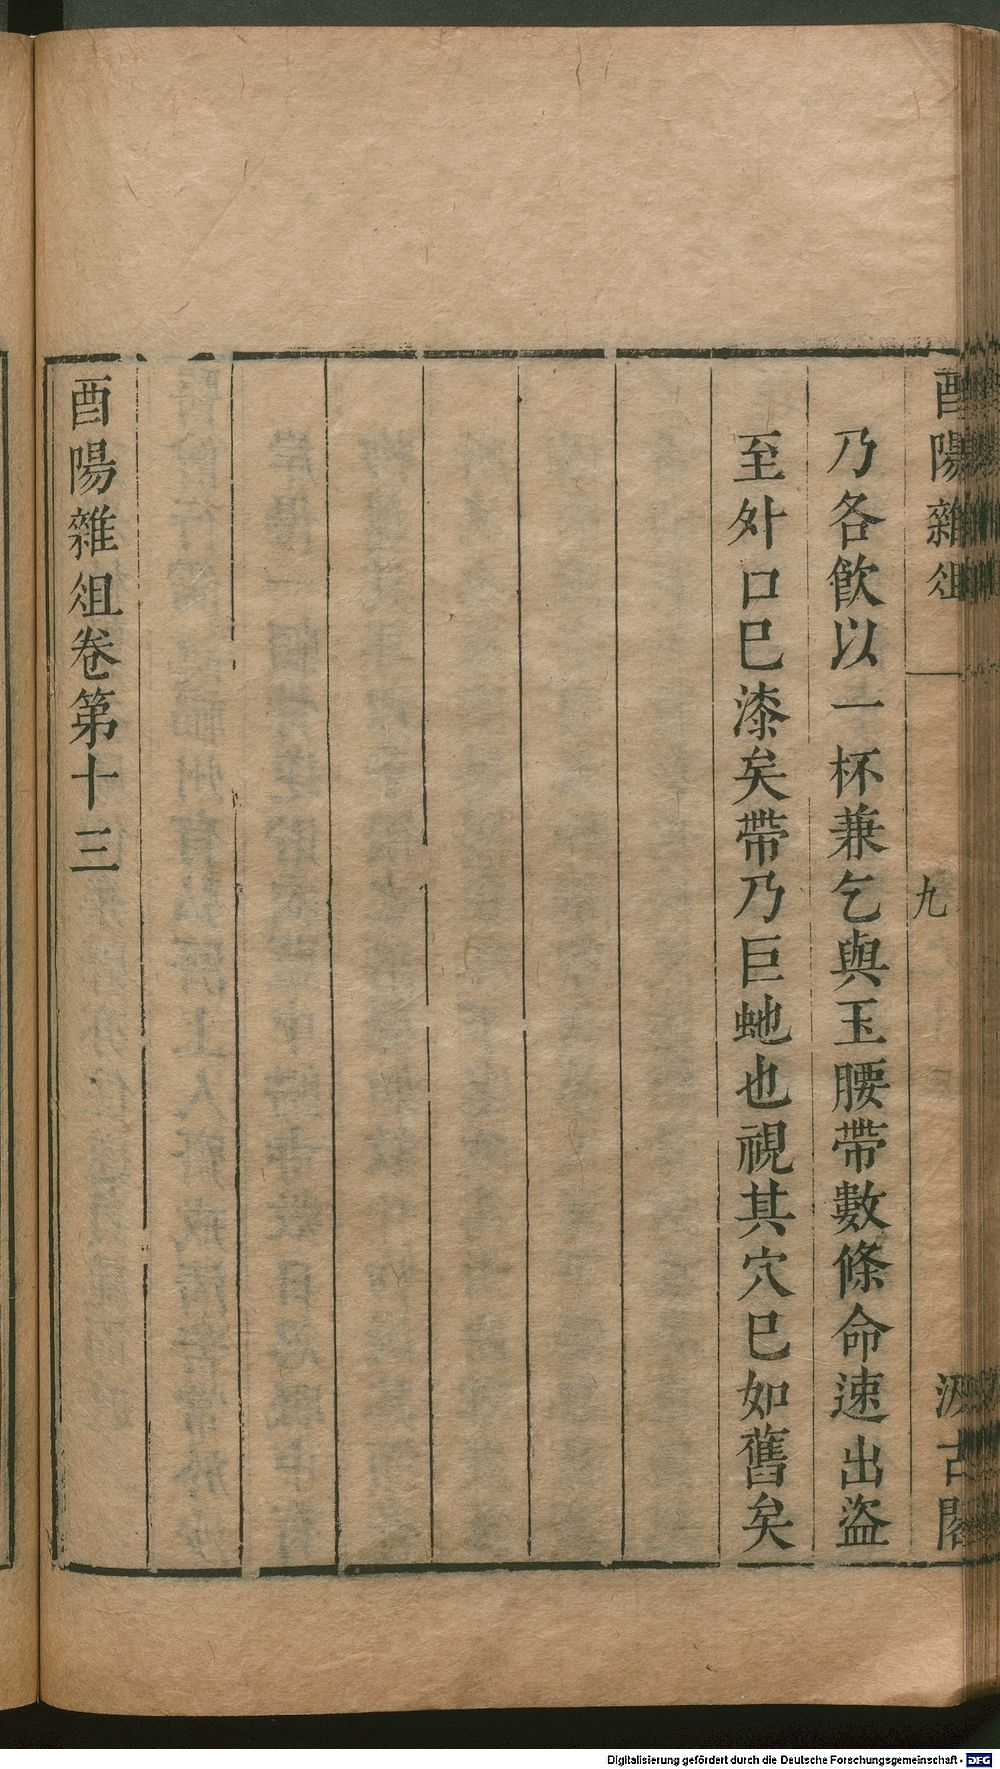 酉陽雜俎
九
汲古閣
乃各飲以一杯兼乞與玉腰帶數條命速出盜
至外口巳漆矣帶乃巨虵也視其穴巳如舊矣
酉陽雜俎卷第十三
Digitalisierung gefördert durch die Deutsche Forschungsgemeinschaft - DFG